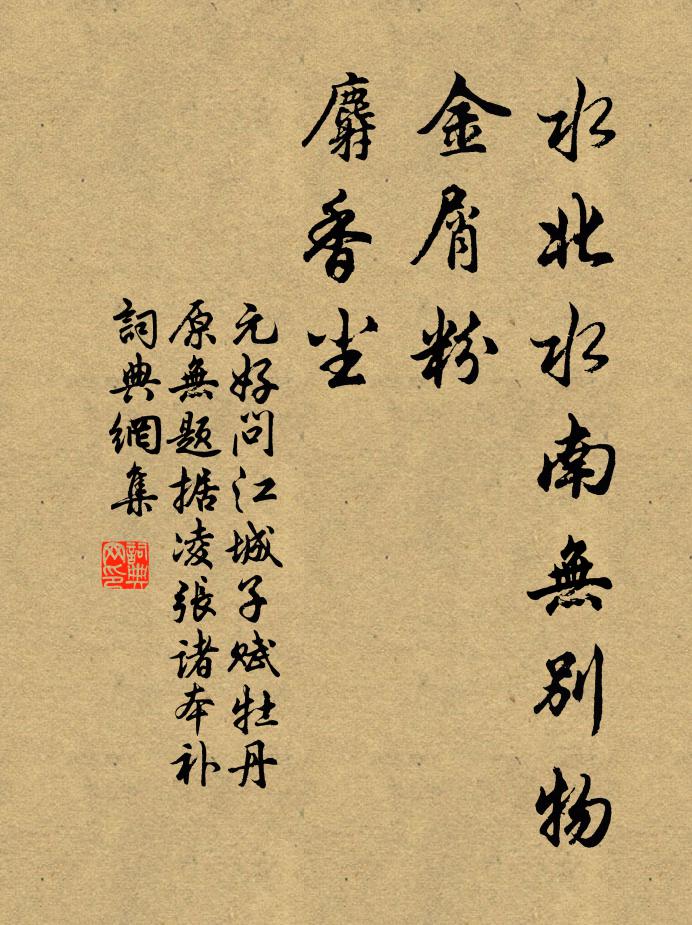 水北水南無別物
金屑粉
麝香尘
元好问江城子赋牡丹
原無题据凌張诸本补
詞典網集
詞典网印